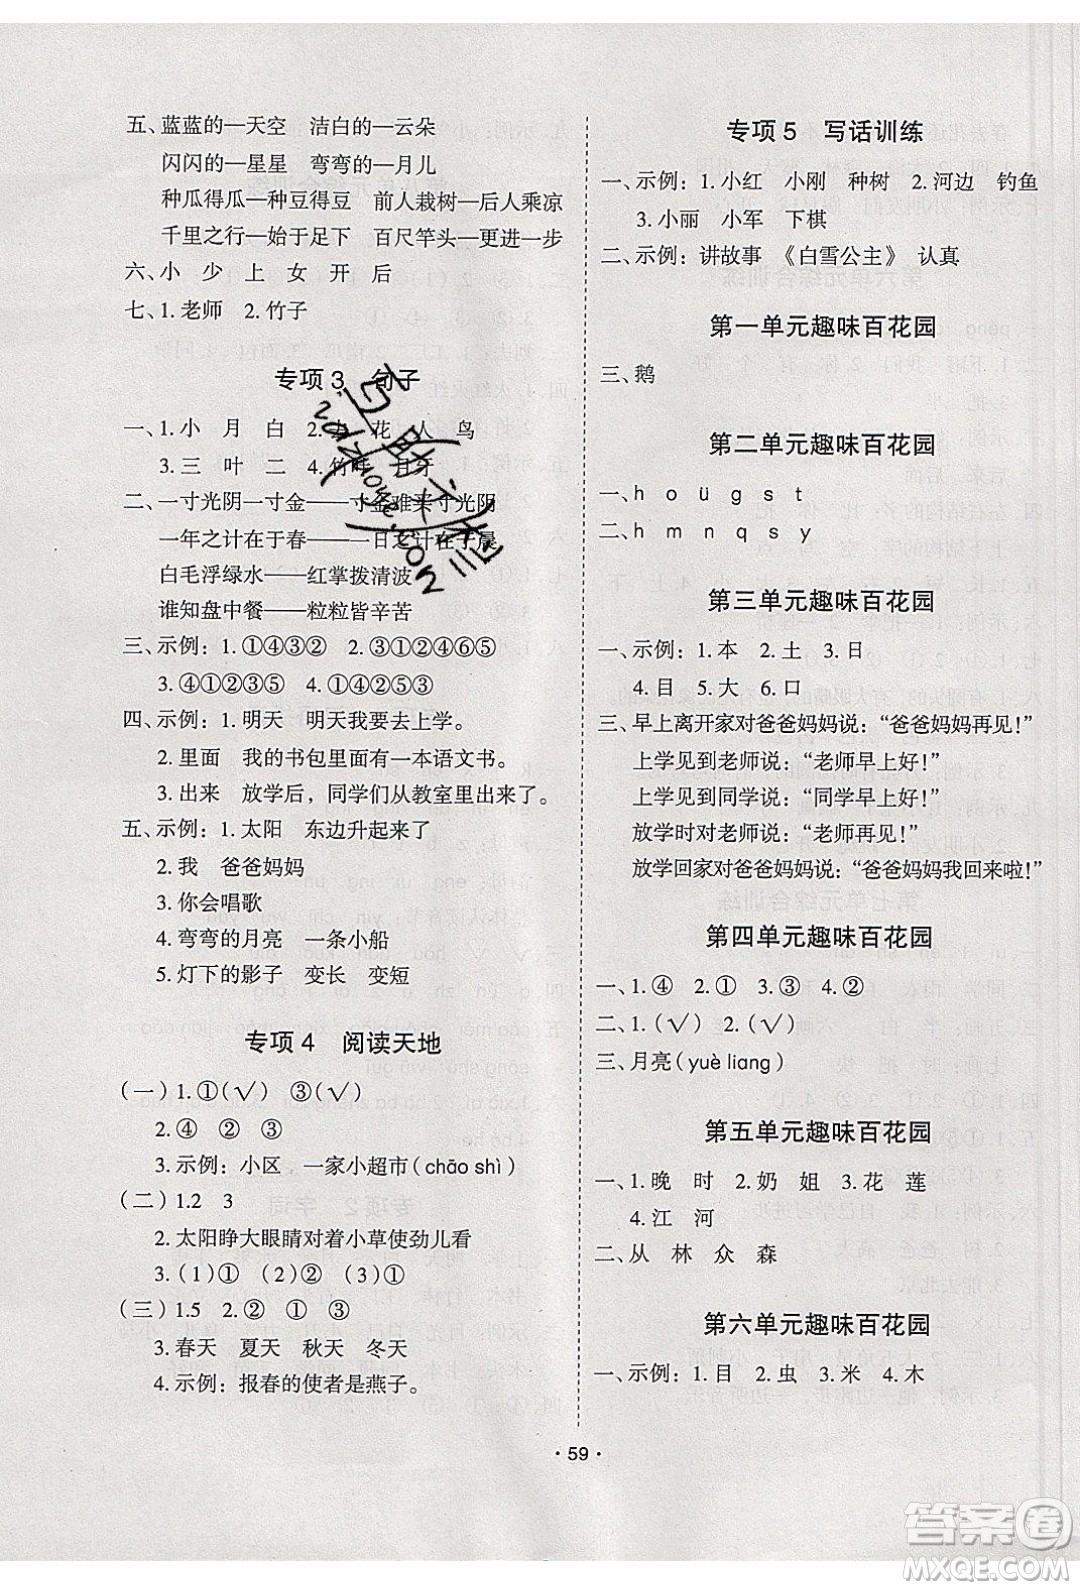 五、蓝蓝的—天空　洁白的—云朵
闪闪的—星星　弯弯的—月儿
种瓜得瓜—种豆得豆　前人栽树—后人乘凉
千里之行—始于足下　百尺竿头—更进一步
六、小　少　上　女　开　后
七、1. 老师　2. 竹子
专项3　句子
一、1. 小　月　白　2. 花　人　鸟
3. 三　叶　二　4. 竹叶　月牙
二、一寸光阴一寸金——寸金难买寸光阴
一年之计在于春——一日之计在于晨
白毛浮绿水——红掌拨清波
谁知盘中餐——粒粒皆辛苦
三、示例：1. ①④③②　2. ①③②④⑥⑤
3. ④①②⑤③　4. ①②④⑤③
四、示例：1. 明天　明天我要去上学。
2. 里面　我的书包里面有一本语文书。
3. 出来　放学后，同学们从教室里出来了。
五、示例：1. 太阳　东边升起来了
2. 我　爸爸妈妈
3. 你会唱歌
4. 弯弯的月亮　一条小船
5. 灯下的影子　变长　变短
专项4　阅读天地
（一）1. ①（√）　③（√）
2. ④　②　③
3. 示例：小区　一家小超市（chāo shì）
（二）1. 2　3
2. 太阳睁大眼睛对着小草使劲儿看
3. （1）①　（2）①　（3）①
（三）1. 5　2. ②　①　③
3. 春天　夏天　秋天　冬天
4. 示例：报春的使者是燕子。
专项5　写话训练
一、示例：1. 小红　小刚　种树　2. 河边　钓鱼
3. 小丽　小军　下棋
二、示例：讲故事　《白雪公主》　认真
第一单元趣味百花园
三、鹅
第二单元趣味百花园
一、h　o　ü　g　s　t
二、h　m　n　q　s　y
第三单元趣味百花园
一、示例：1. 本　2. 土　3. 日
4. 目　5. 大　6. 口
三、早上离开家对爸爸妈妈说：“爸爸妈妈再见！”
上学见到老师说：“老师早上好！”
上学见到同学说：“同学早上好！”
放学时对老师说：“老师再见！”
放学回家对爸爸妈妈说：“爸爸妈妈我回来啦！”
第四单元趣味百花园
一、1. ④　2. ①　3. ③　4. ②
二、1. （√）　2. （√）
三、月亮（yuè liang）
第五单元趣味百花园
一、1. 晚　时　2. 奶　姐　3. 花　莲
4. 江　河
二、从　林　众　森
第六单元趣味百花园
一、示例：1. 目　2. 虫　3. 米　4. 木
• 59 •
答案圈
MXQE.COM